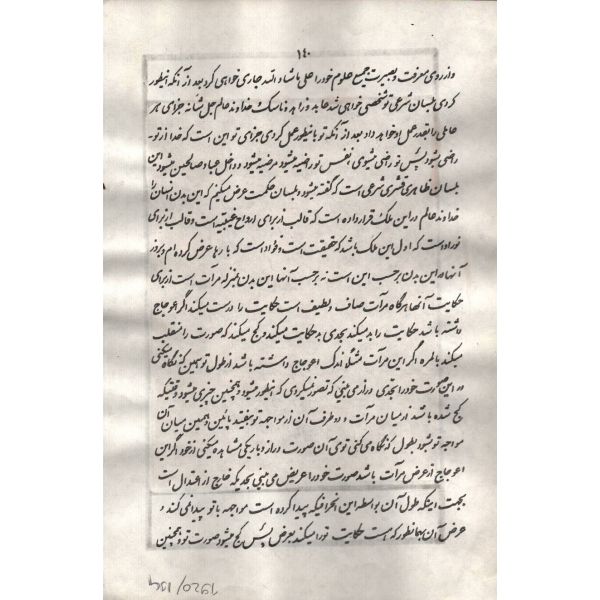 ۱٤۰
و از روی معرفت و بصیرت جمیع علوم خود را علی ما شاء الله جاری خواهی کرد بعد از آنکه اینطور
کردی بلسان شرعی تو شخصی خواهی شد عابد و زاهد و ناسک خداوند عالم جل شأنه جزای هر
عاملی را بقدر عمل او خواهد داد بعد از آنکه تو باینطور عمل کردی جزای تو این است که خدا از تو
راضی میشود پس تو راضی میشوی نفس تو راضیه میشود مرضیه میشود و داخل عباد صالحین میشود این
بلسان ظاهری قشری شرعی است که گفته میشود و بلسان حکمت عرض میکنیم که این بدن انسان را
خداوند عالم در این ملک قرار داده است که قالب از برای ارواح غیبیه است و قالب از برای
نور او است که اول این ملک باشد که حقیقت است و فؤاد است که بارها عرض کرده‌ام و بروز
آنها در این بدن بر حسب این است نه بر حسب آنها این بدن بمنزله مرآت است از برای
حکایت آنها هر گاه مرآت صاف و لطیف است حکایت را درست میکند اگر اعوجاج
داشته باشد حکایت را بد میکند بحدی بد حکایت میکند و کج میکند که صورت را منقلب
میکند بالمره اگر این مرآت مثلاً اندک اعوجاج داشته باشد از طول تو همین که نگاه میکنی
در این صورت خود را بحدی دراز می بینی که تصور نمیکردی که اینطور میشود و همچنین چیزی میشود وقتیکه
کج شده باشد از میان مرآت و دو طرف آن از مواجه تو بیفتد پائین و همین میان آن
مواجه تو شود بطول که نگاه می کنی توی آن صورت دراز و باریکی مشاهده میکنی از خود اگر این
اعوجاج از عرض مرآت باشد صورت خود را عریض می بینی بحدیکه خارج از اعتدال است
بجهت اینکه طول آن بواسطه این انحرافیکه پیدا کرده است مواجهه با تو پیدا نمی کند و
عرض آن بهمانطور که هست حکایت تو را میکند بعرض پس کج میشود صورت تو و همچنین